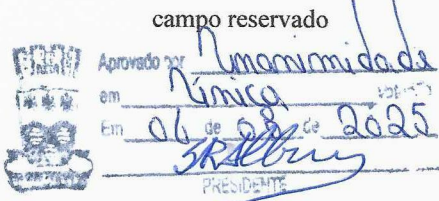 campo reservado
Aprovado por Unanimidade
em Única votação
Em 04 de 08 de 2025
PRESIDENTE